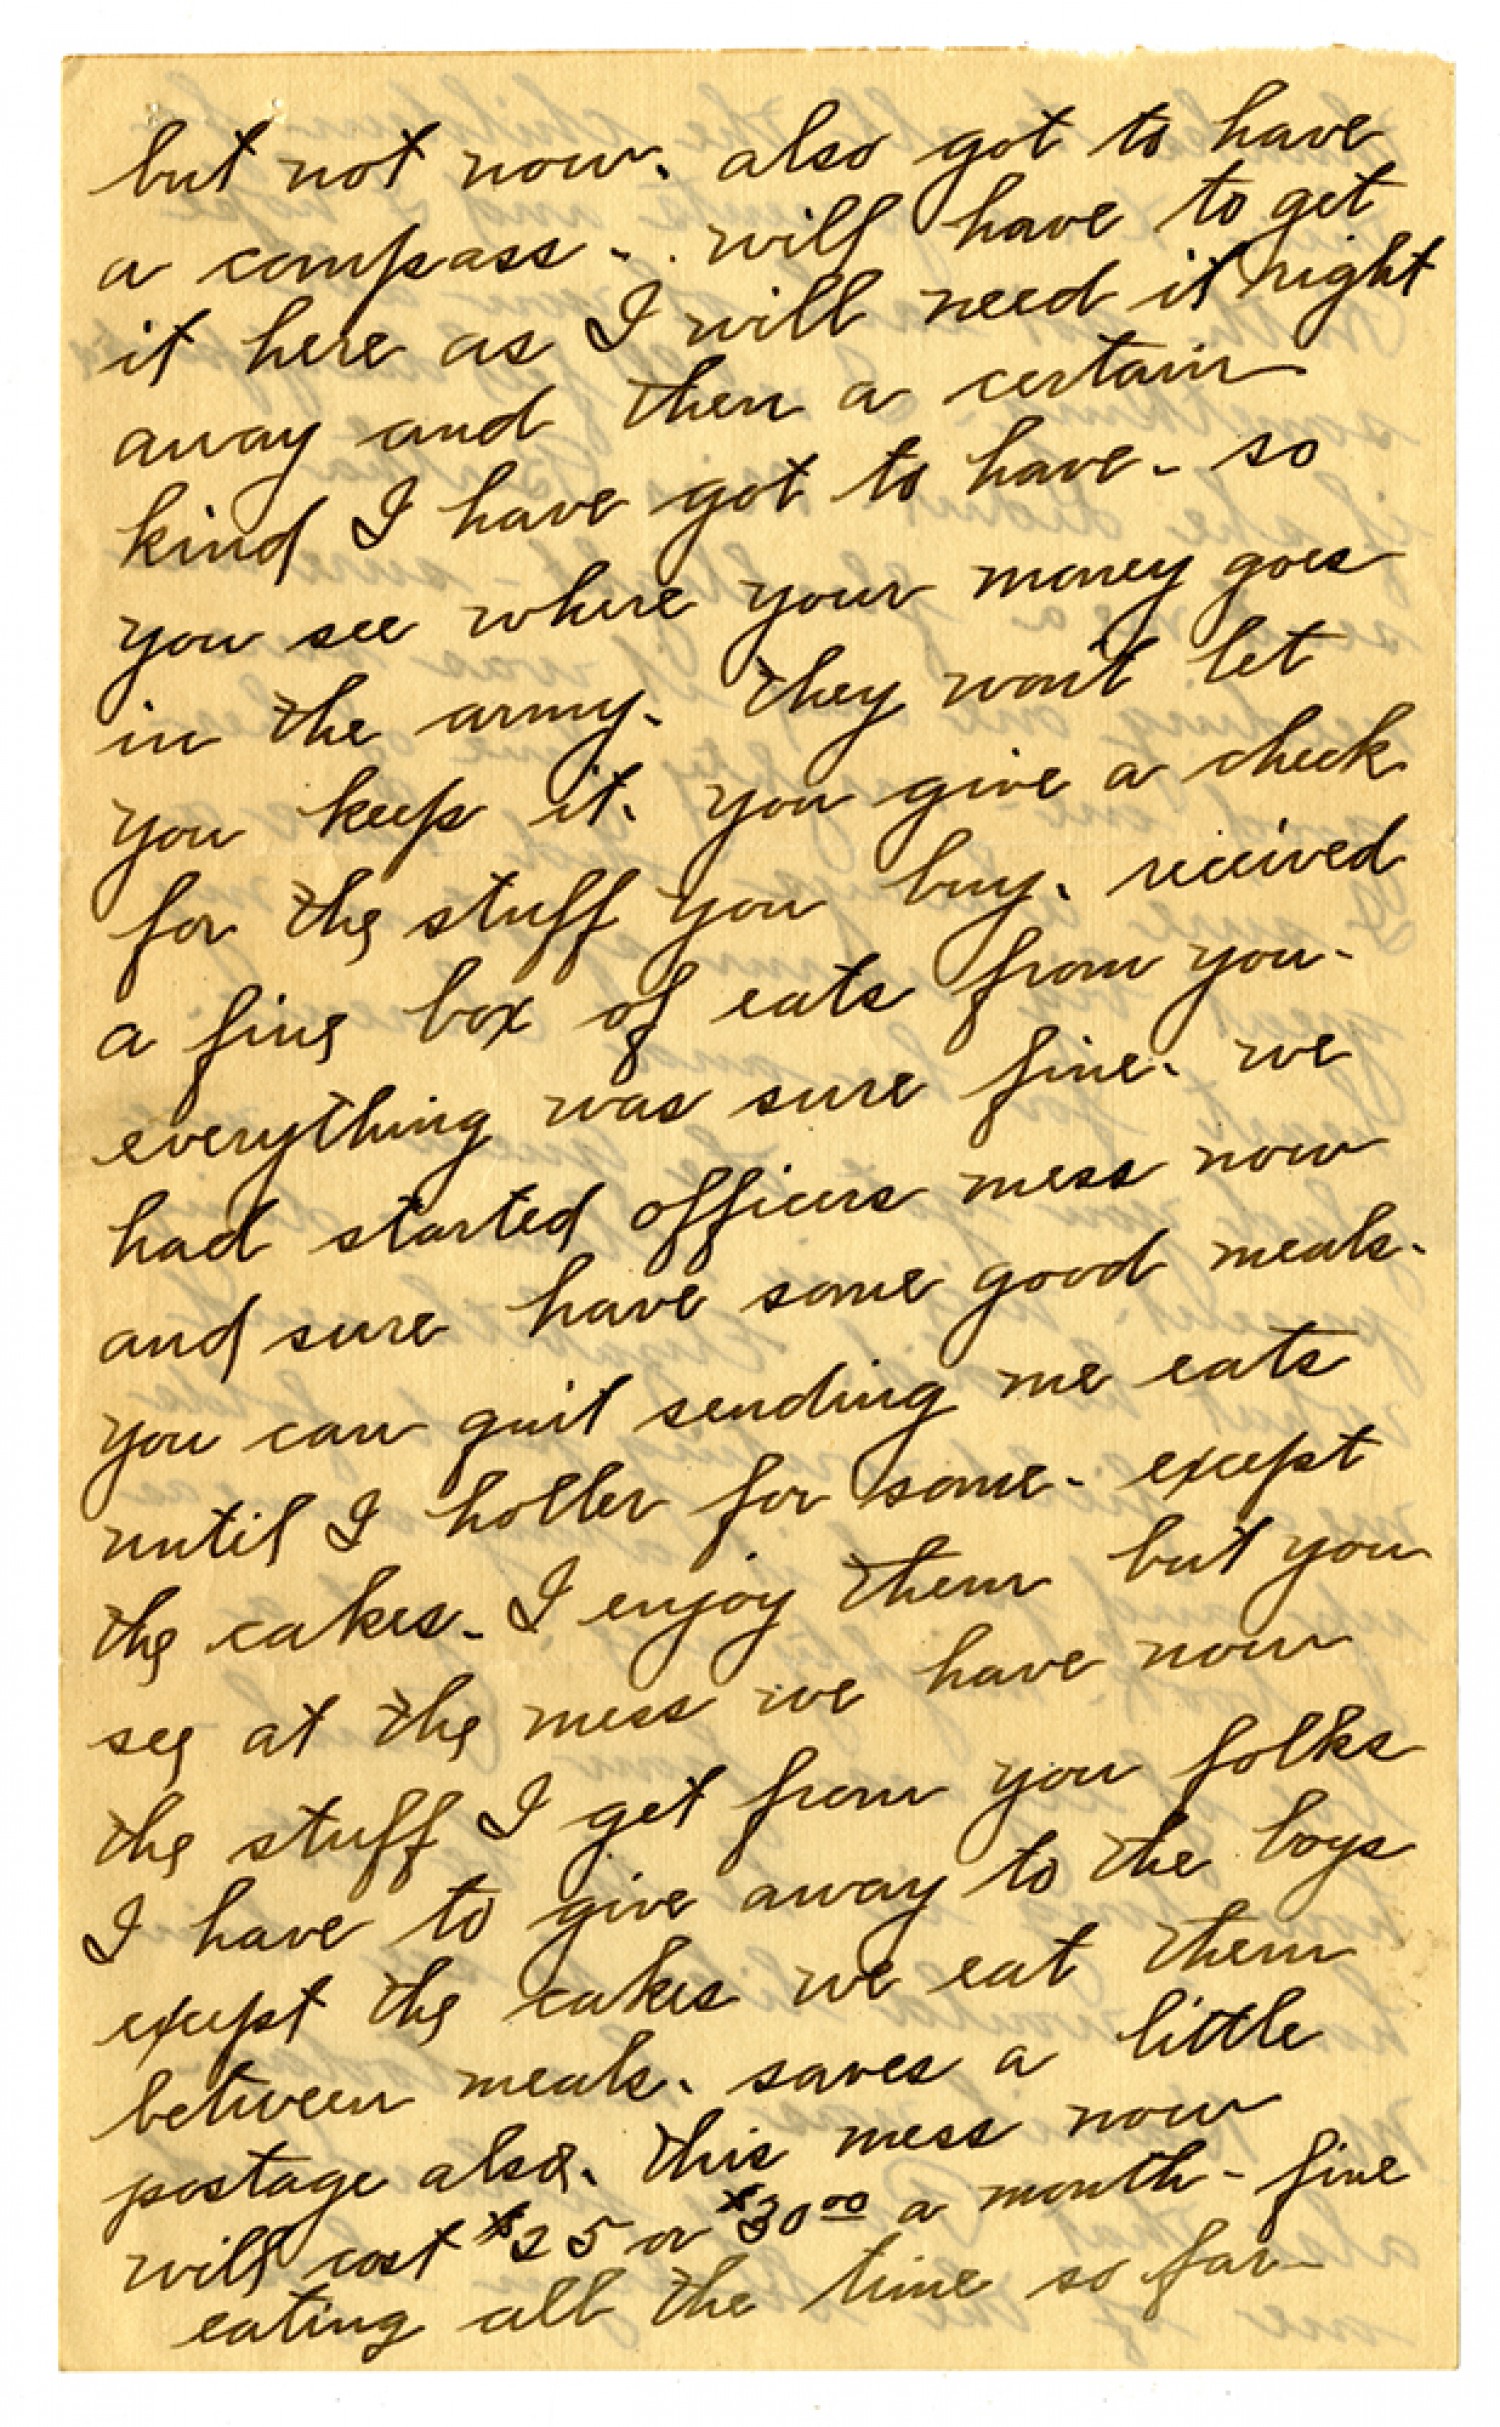 but not now. also got to have
a compass - . will have to get
it here as I will need it right
away and then a certain
kind I have got to have - so
you see where your money goes
in the army. they won't let
you keep it. you give a check
for the stuff you buy. received
a fine box of eats from you -
everything was sure fine. we
had started officers mess now
and sure have some good meals.
you can quit sending me eats
until I holler for some - except
the cakes - I enjoy them but you
see at the mess we have now
the stuff I get from you folks
I have to give away to the boys
except the cakes we eat them
between meals. saves a little
postage also. this mess now
will cost $25 or $30.00 a month - fine
eating all the time so far -